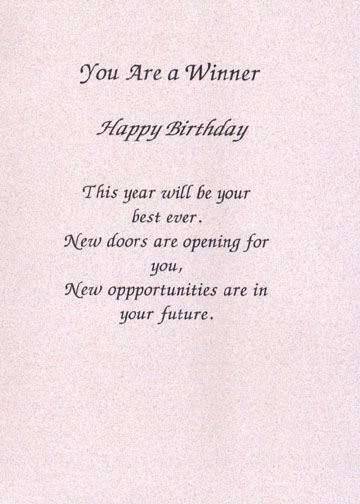 You Are a Winner
Happy Birthday
This year will be your
best ever.
New doors are opening for
you,
New oppportunities are in
your future.